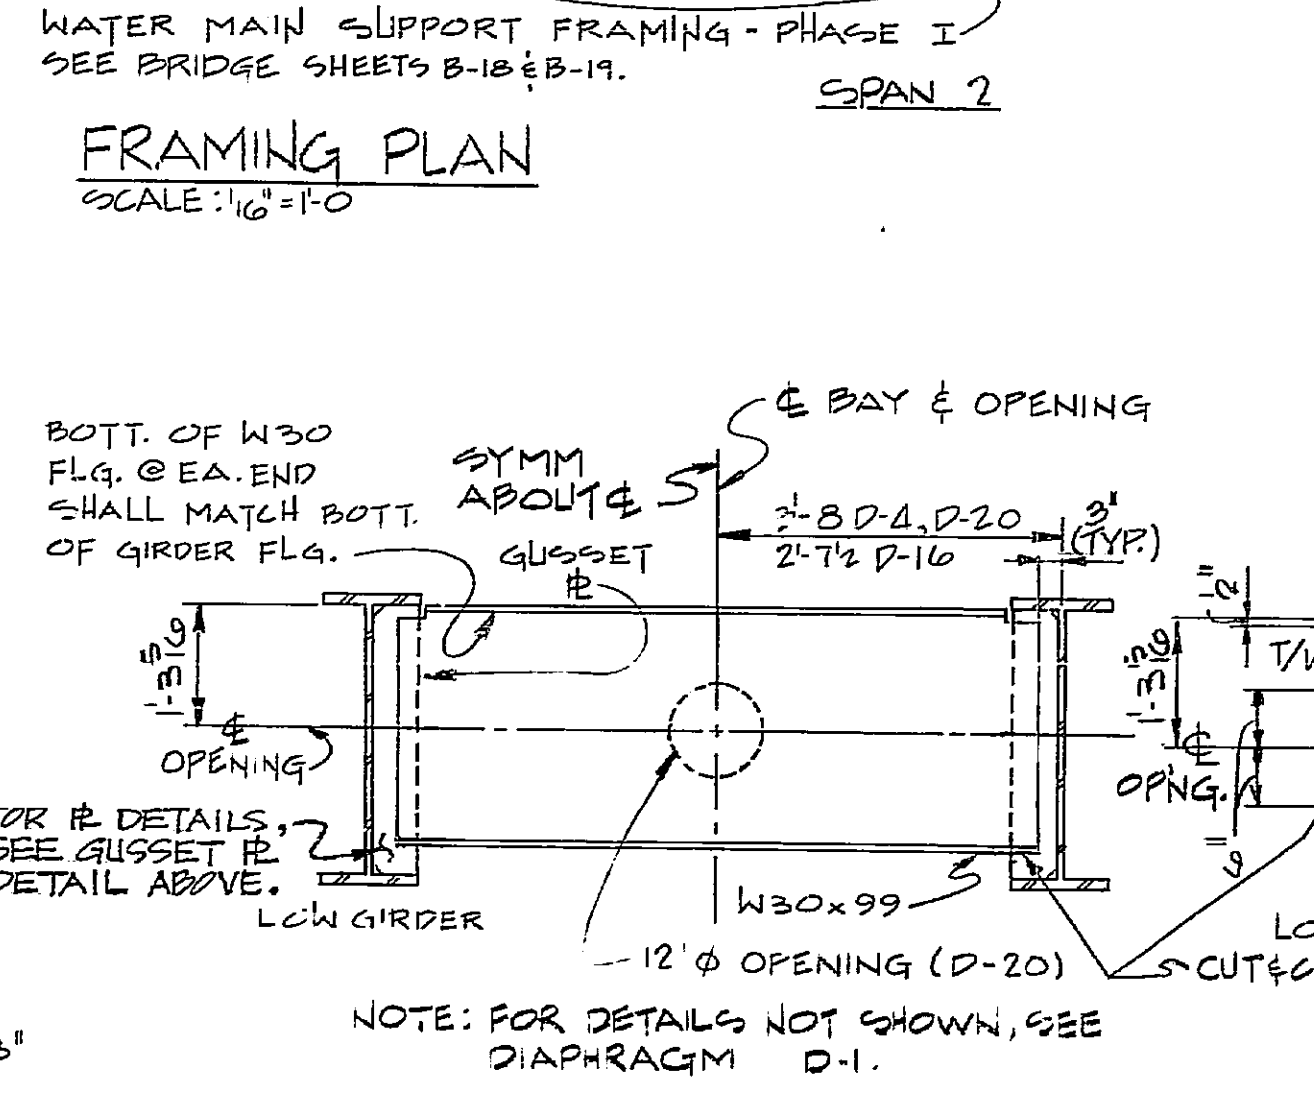 WATER MAIN SUPPORT FRAMING - PHASE I
SEE BRIDGE SHEETS B-18 & B-19.
SPAN 2
FRAMING PLAN
SCALE: 1/16" = 1'-0
℄ BAY & OPENING
BOTT. OF W30
FLG. @ EA. END
SHALL MATCH BOTT.
OF GIRDER FLG.
SYMM
ABOUT ℄
GUSSET
PL
3'-8 D-4, D-20
2'-7 1/2 D-16
3"
(TYP.)
1'-3 5/16
℄
OPENING
1'-3 5/16
℄
OP'NG.
1/2"
T/
PL DETAILS,
SEE GUSSET PL
DETAIL ABOVE.
LOW GIRDER
W30x99
12"ø OPENING (D-20)
CUT &
NOTE: FOR DETAILS NOT SHOWN, SEE
DIAPHRAGM D-1.